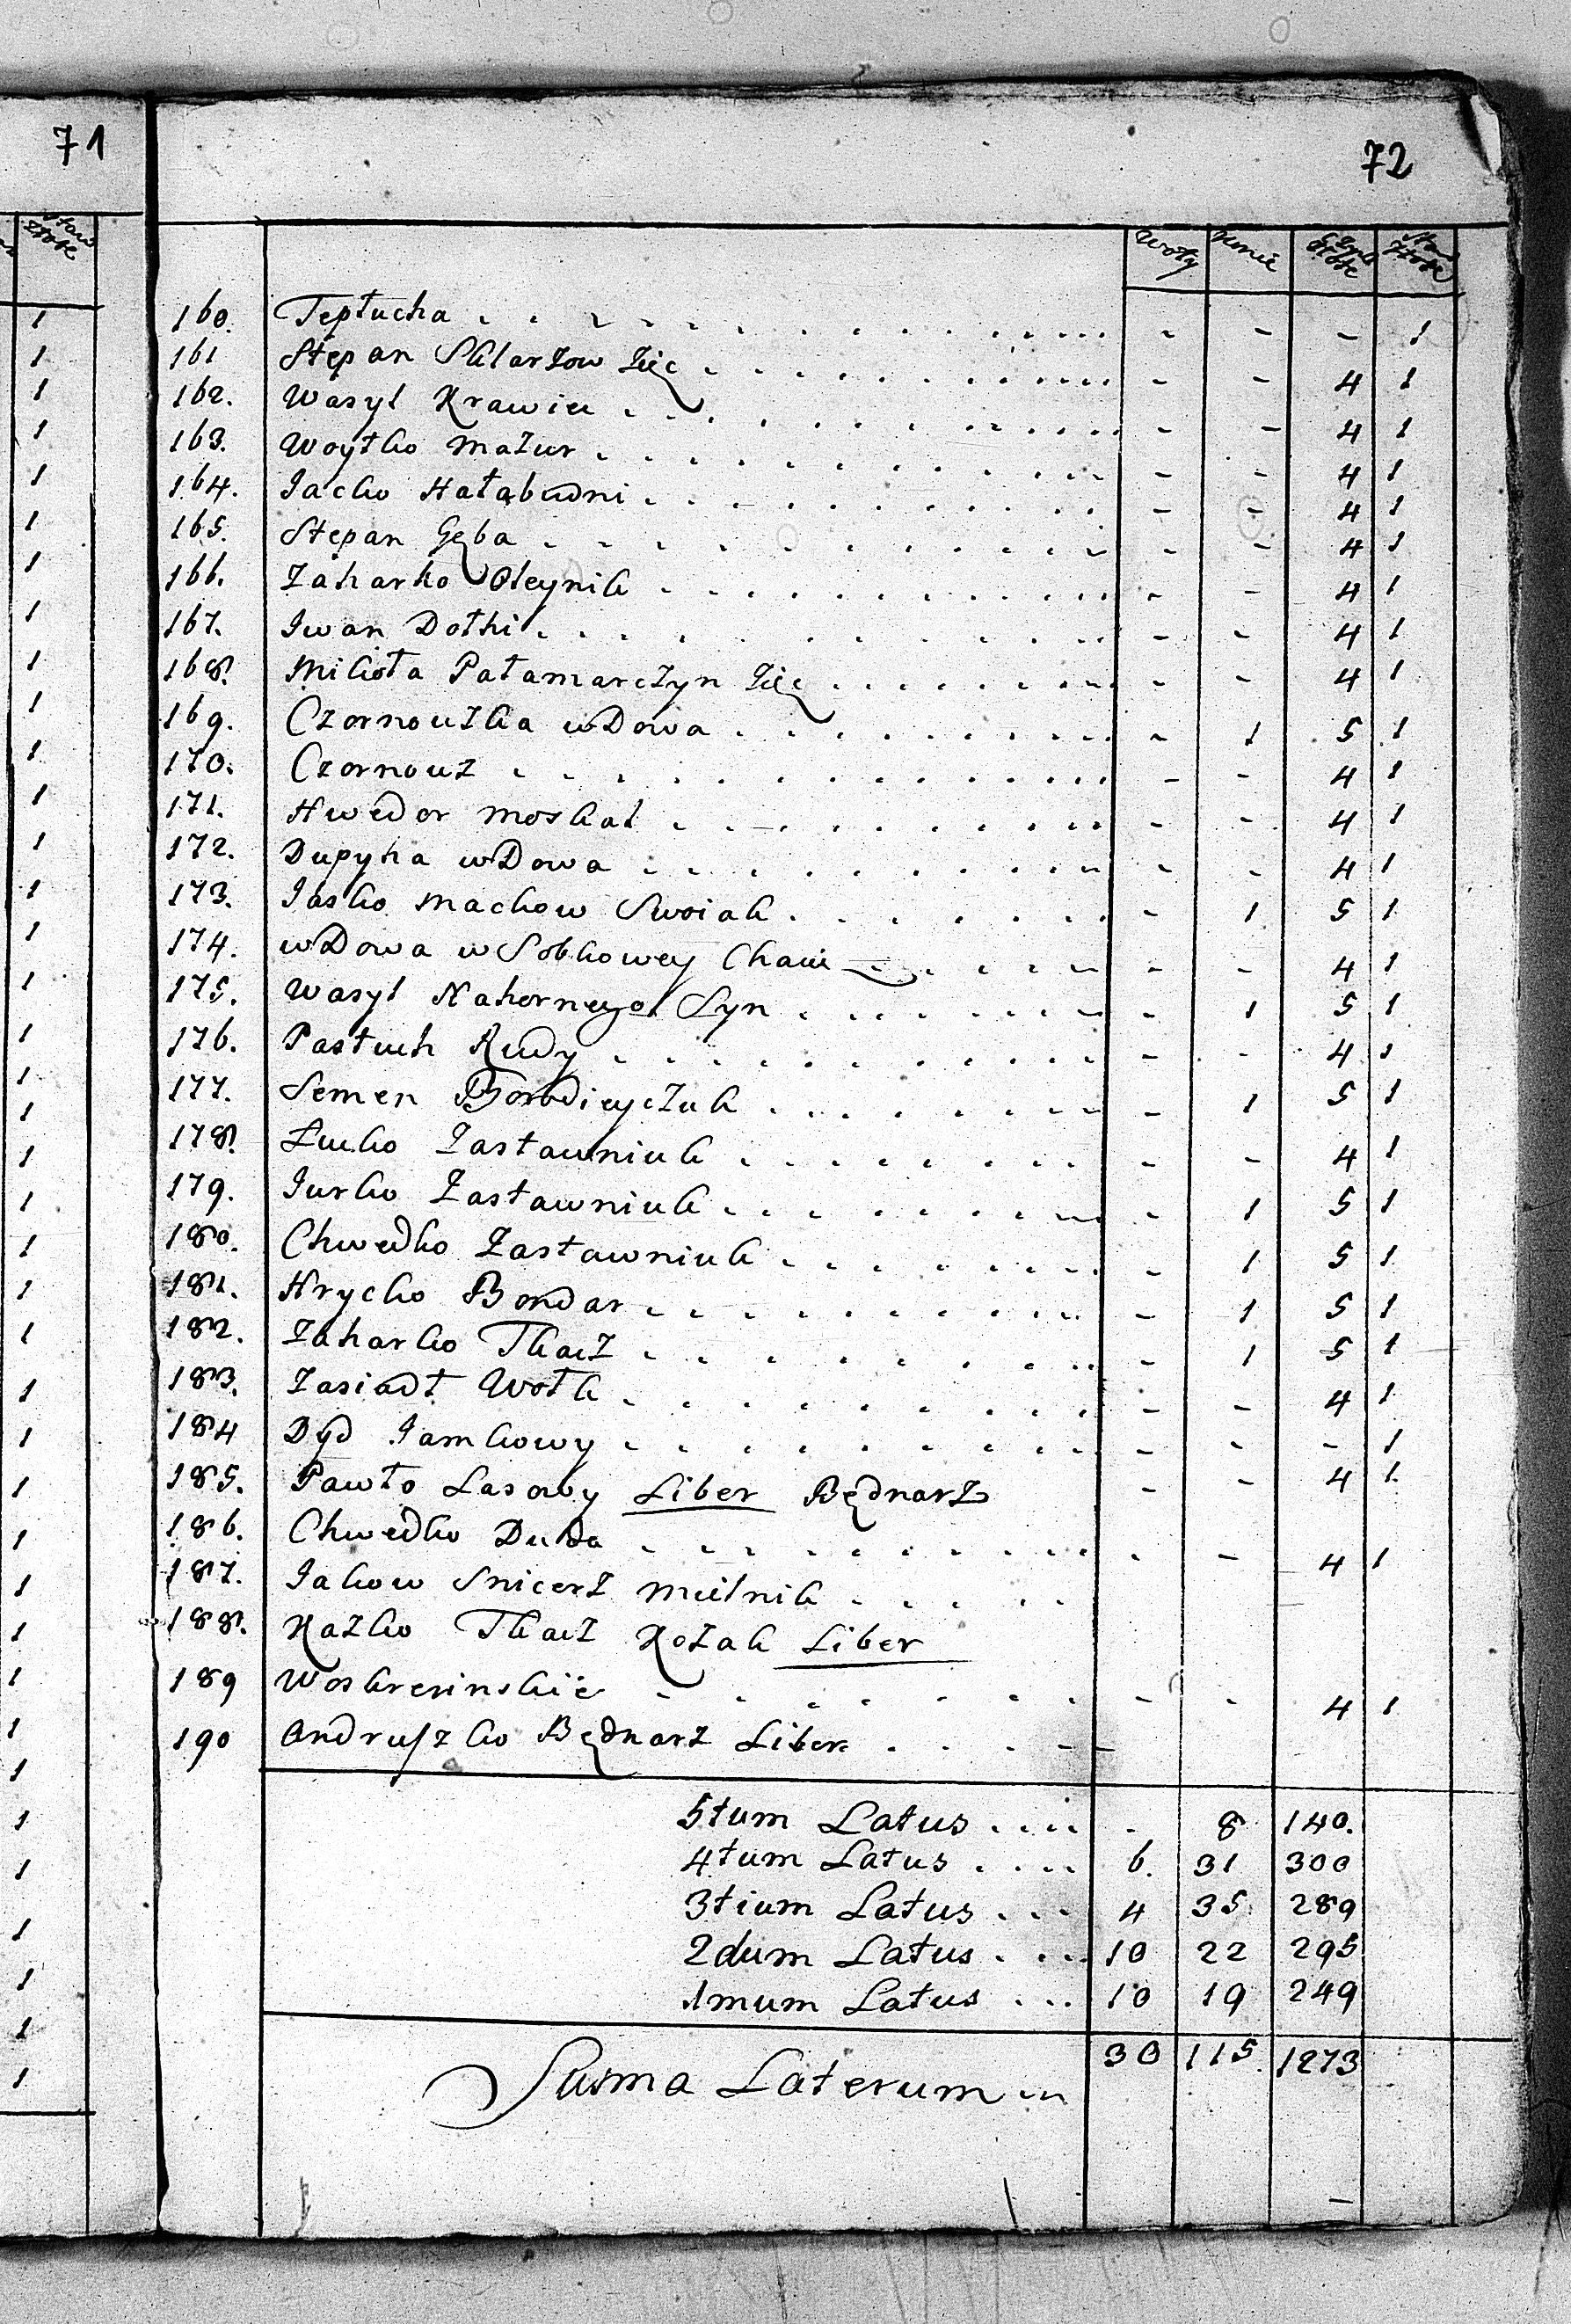 71
72
Woły Konie Czynsz Złote Staw Złote
160. Tepłucha . . . . - - - 1
161 Stepan Sklarzow Zięć . . . . - - 4 1
162. Wasyl Krawiec . . . . - - 4 1
163. Woytko Mazur . . . . - - 4 1
164. Jacko Hałabudni . . . . - - 4 1
165. Stepan Gęba . . . . - - 4 1
166. Zaharko Oleynik . . . . - - 4 1
167. Iwan Dołhi . . . . - - 4 1
168. Mikoła Pałamarczyn Zięć . . . . - - 4 1
169. Czornouzka wDowa . . . . - 1 5 1
170. Czornouz . . . . - - 4 1
171. Hwedor Moskal . . . . - - 4 1
172. Dupyha wDowa . . . . - - 4 1
173. Jasko Mackow Swoiak . . . . - 1 5 1
174. wDowa w Sobkowey Chacie . . . . - - 4 1
175. Wasyl Nahornego Syn . . . . - 1 5 1
176. Pastuch Rudy . . . . - - 4 1
177. Semen Borodieyczuk . . . . - 1 5 1
178. Łucko Zastawniuk . . . . - - 4 1
179. Jurko Zastawniuk . . . . - 1 5 1
180. Chwedko Zastawniuk . . . . - 1 5 1
181. Hrycko Bondar . . . . - 1 5 1
182. Zaharko Tkacz . . . . - 1 5 1
183. Zasiadł Wołk . . . . - - 4 1
184 Dyd Jamkowy . . . . - - - 1
185. Pawło Lasowy Liber Bednarz - - 4 1
186. Chwedko Duda . . . . - - 4 1
187. Jakow Snicerz Mielnik . . . .
188. Kazko Tkacz Kozak Liber
189 Woskresinskie . . . . - - 4 1
190 Andruszko Będnarz Liber . . . .
5tum Latus . . . . - 8 140.
4tum Latus . . . . 6. 31 300
3tium Latus . . . 4 35 289
2dum Latus . . . 10 22 295
1mum Latus . . . 10 19 249
Suma Laterum 30 115. 1273